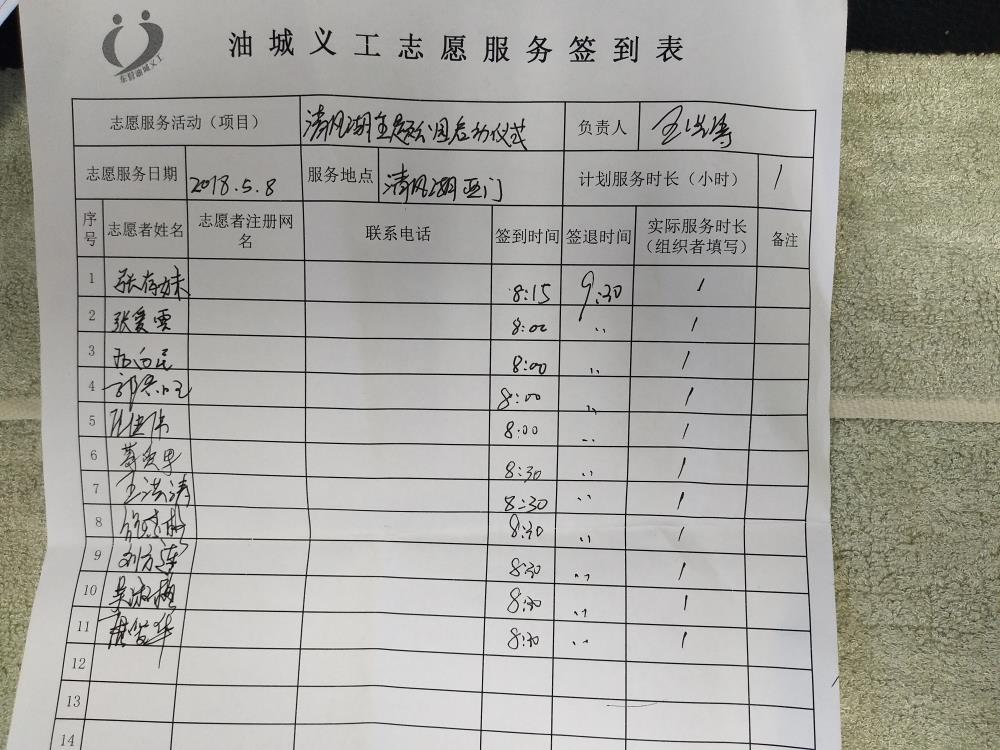 东营油城义工
油城义工志愿服务签到表
志愿服务活动（项目） 清风湖主题公园启动仪式 负责人 王洪涛
志愿服务日期 2018.5.8 服务地点 清风湖西门 计划服务时长（小时） 1
序号 志愿者姓名 志愿者注册网名 联系电话 签到时间 签退时间 实际服务时长（组织者填写） 备注
1 张存妹 8:15 9:30 1
2 张爱云 8:00 〃 1
3 8:00 〃 1
4 8:00 〃 1
5 8:00 〃 1
6 8:30 〃 1
7 王洪涛 8:30 〃 1
8 8:30 〃 1
9 刘方军 8:30 〃 1
10 吴淑梅 8:30 〃 1
11 8:30 〃 1
12
13
14